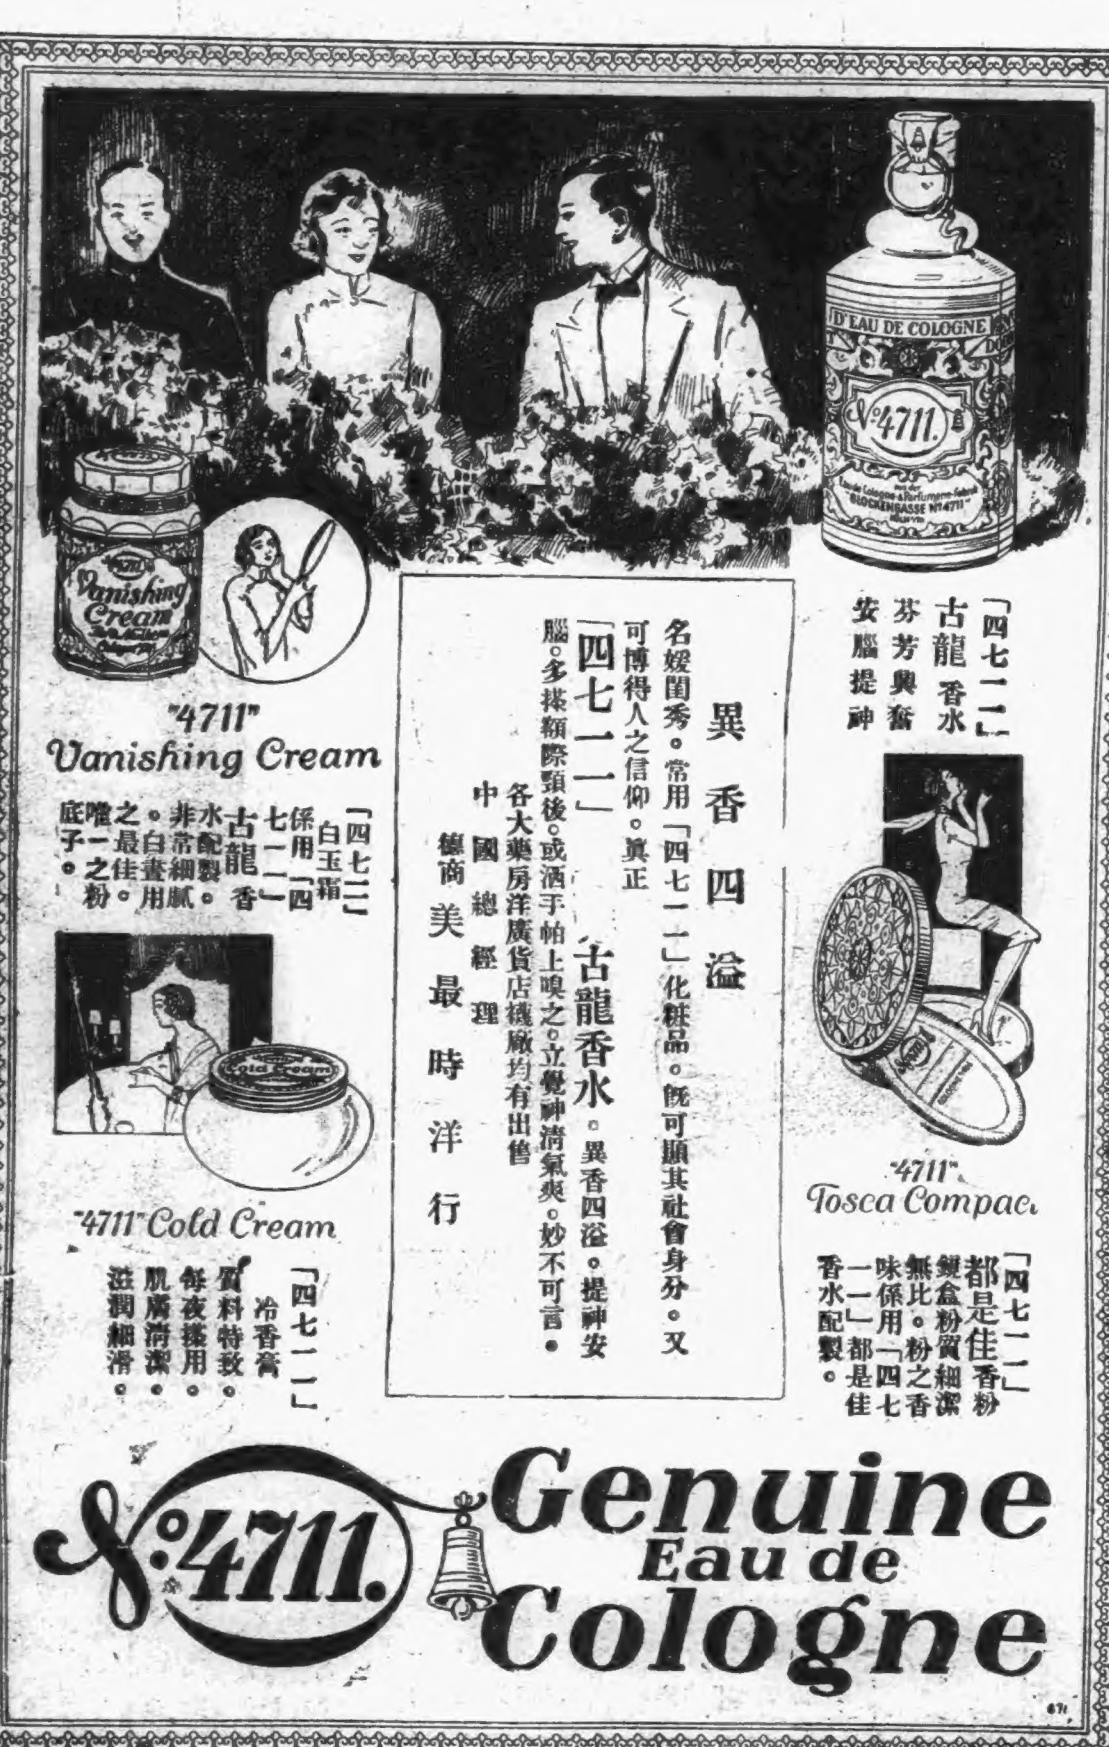 D'EAU DE COLOGNE
No 4711.
aus der
Eau de Cologne- & Parfumerie-Fabrik
"GLOCKENGASSE No 4711"
KÖLN
「四七一一」
古龍香水
芬芳興奮
安腦提神
4711
Vanishing
Cream
"4711"
Vanishing Cream
「四七一一」
白玉霜
係用「四
七一一」
古龍香
水配製。
非常細膩
。白晝用
之最佳。
唯一之粉
底子。
異香四溢
名媛閨秀。常用「四七一一」化粧品。既可顯其社會身分。又
可博得人之信仰。眞正
「四七一一」古龍香水。異香四溢。提神安
腦。多搽額際頸後。或洒手帕上嗅之。立覺神清氣爽。妙不可言。
各大藥房洋廣貨店機廠均有出售
中國總經理
德商美最時洋行
4711
"4711"
Tosca Compac
「四七一一」
都是佳香粉
鏡盒粉質細潔
無比。粉之香
味係用「四七
一一」都是佳
香水配製。
Cold Cream
"4711" Cold Cream
「四七一一」
冷香膏
質料特致。
每夜搽用。
肌膚清潔。
滋潤細滑。
No: 4711.
Genuine
Eau de
Cologne